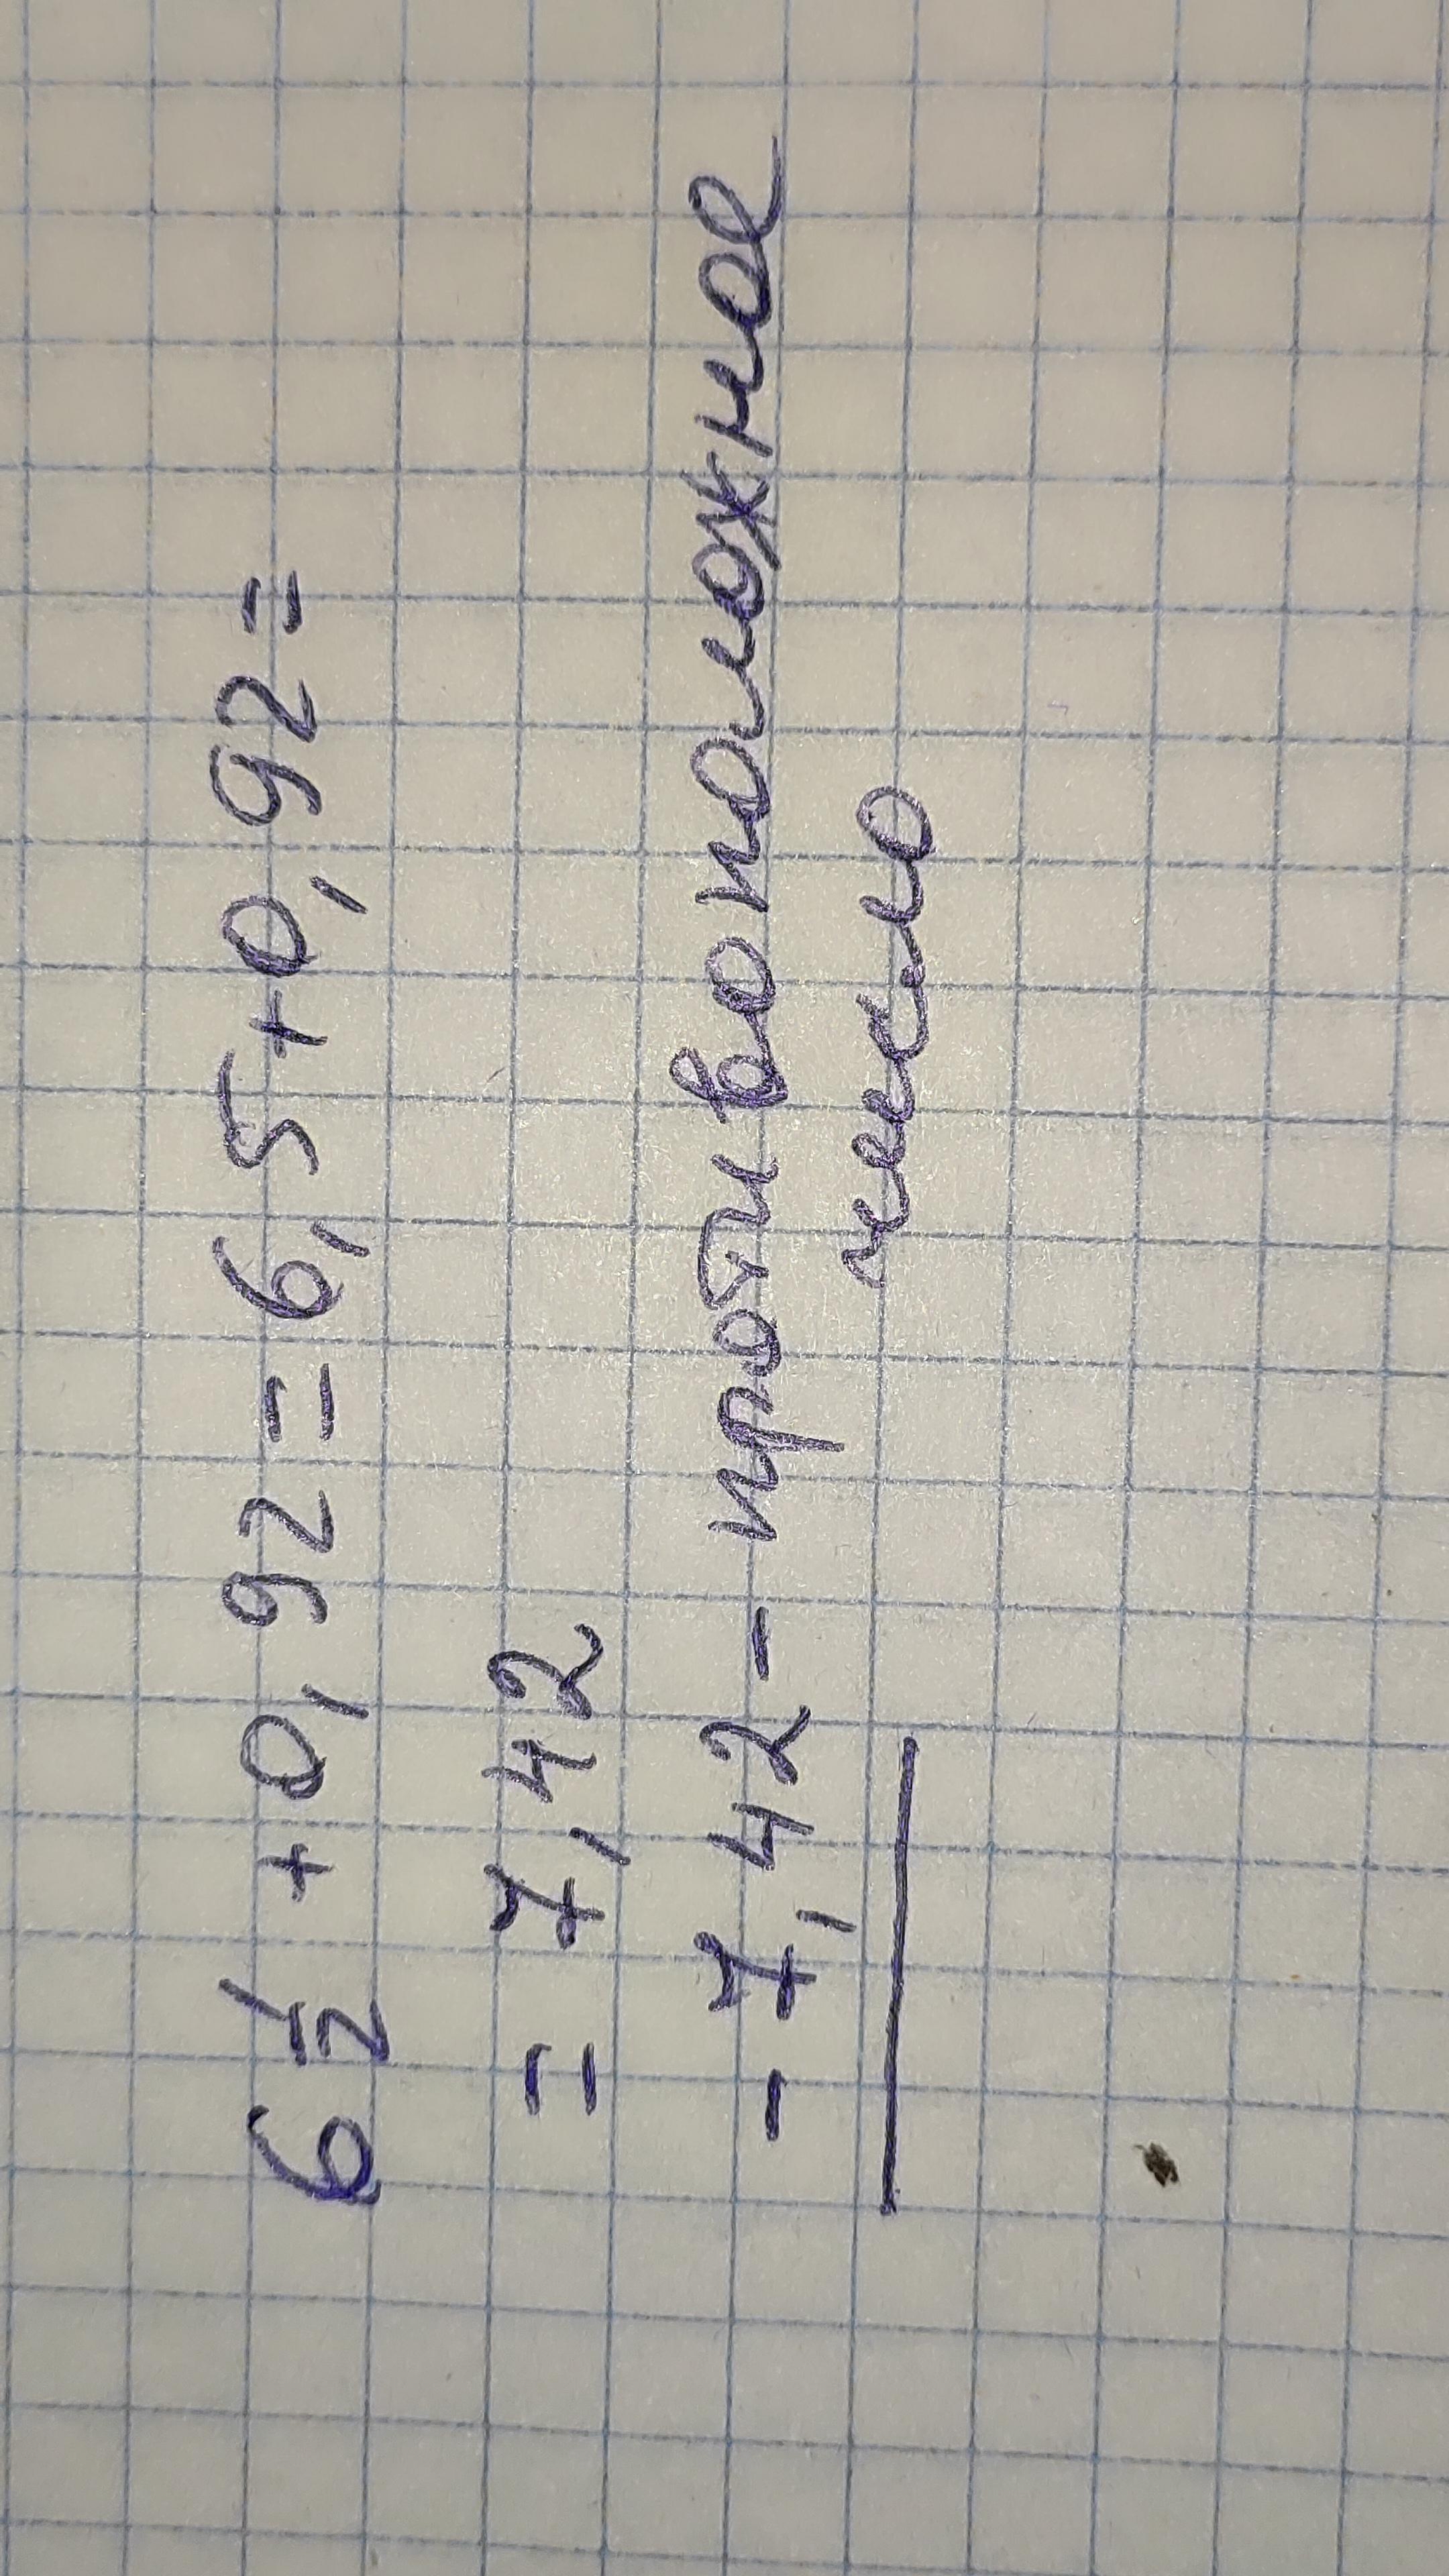 6 1/2 + 0,92 = 6,5 + 0,92 =
= 7,42
- 7,42 - противоположное
число